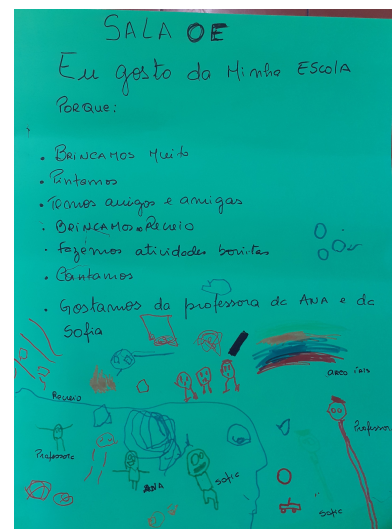 SALA OE
Eu gosto da Minha ESCOLA
PORQUE:
• BRINCAMOS Muito
• Pintamos
• Temos amigos e amigas
• BRINCAMOS no Recreio
• fazemos atividades bonitas
• Cantamos
• Gostamos da professora da ANA e da
Sofia
ARCO ÍRIS
Recreio
Professora
Professora
ANA
Sofia
Sofia